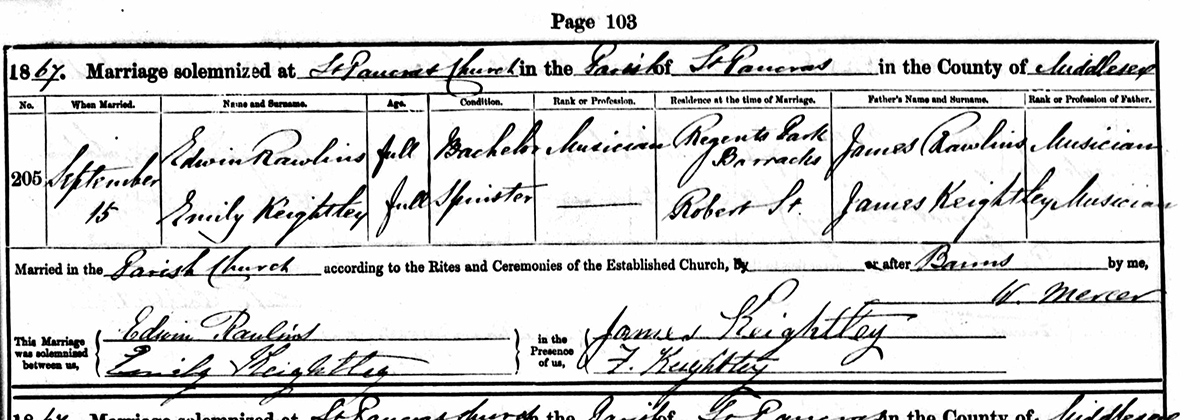 Page 103
1867. Marriage solemnized at St Pancras Church in the Parish of St Pancras in the County of Middlesex
No. When Married. Name and Surname. Age. Condition. Rank or Profession. Residence at the time of Marriage. Father's Name and Surname. Rank or Profession of Father.
205 September 15 Edwin Rawlins full Bachelor Musician Regents Park Barracks James Rawlins Musician
Emily Keightley full Spinster Robert St. James Keightley Musician
Married in the Parish Church according to the Rites and Ceremonies of the Established Church, by or after Banns by me,
W. Mercer
This Marriage was solemnized between us, Edwin Rawlins in the Presence of us, James Keightley
Emily Keightley F. Keightley
1867. Marriage solemnized at St Pancras Church in the Parish of St Pancras in the County of Middlesex